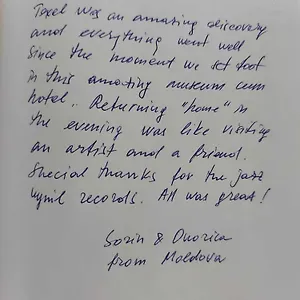 Texel was an amazing discovery
and everything went well
since the moment we set foot
in this amazing museum cum
hotel. Returning "home" in
the evening was like visiting
an artist and a friend.
Special thanks for the jazz
vynil records. All was great!
Sorin & Dnorica
from Moldova